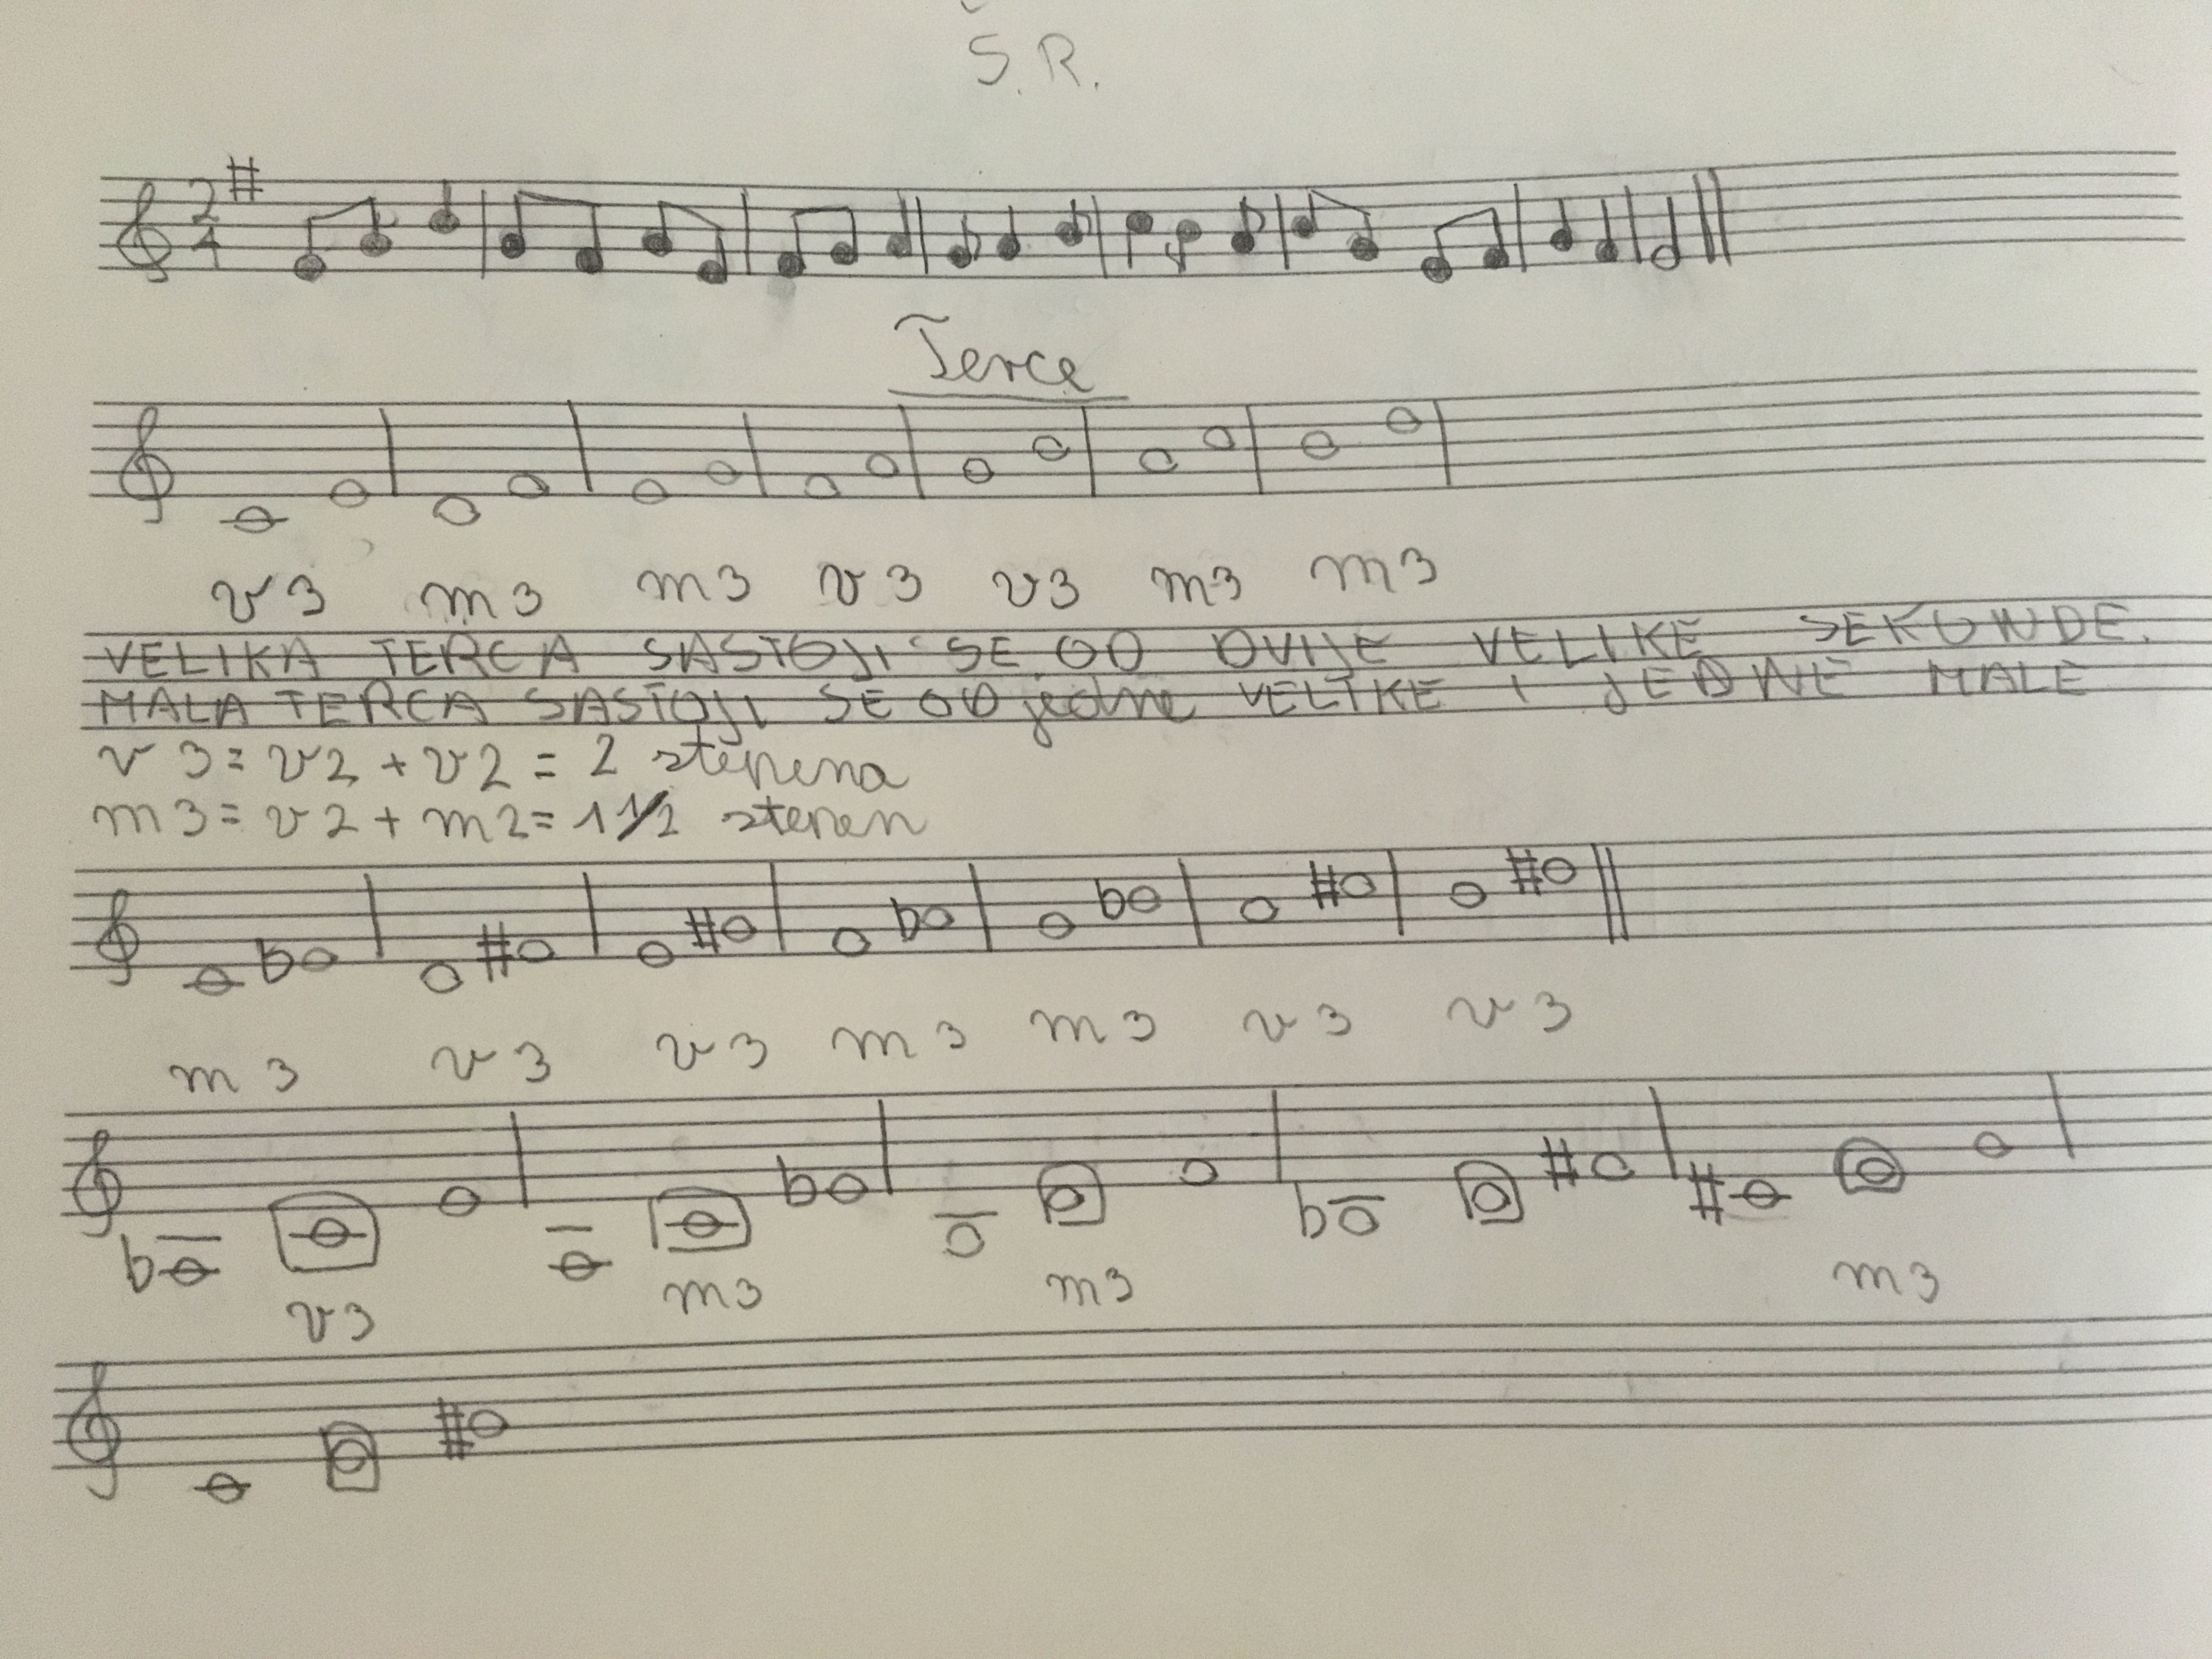 Š.R.
2
4
Terce
v3 m3 m3 v3 v3 m3 m3
VELIKA TERCA SASTOJI SE OD DVIJE VELIKE SEKUNDE.
MALA TERCA SASTOJI SE OD jedne VELIKE I JEDNE MALE
v3 = v2 + v2 = 2 stepena
m3 = v2 + m2 = 1 1/2 stepen
m3 v3 v3 m3 m3 v3 v3
v3 m3 m3 m3